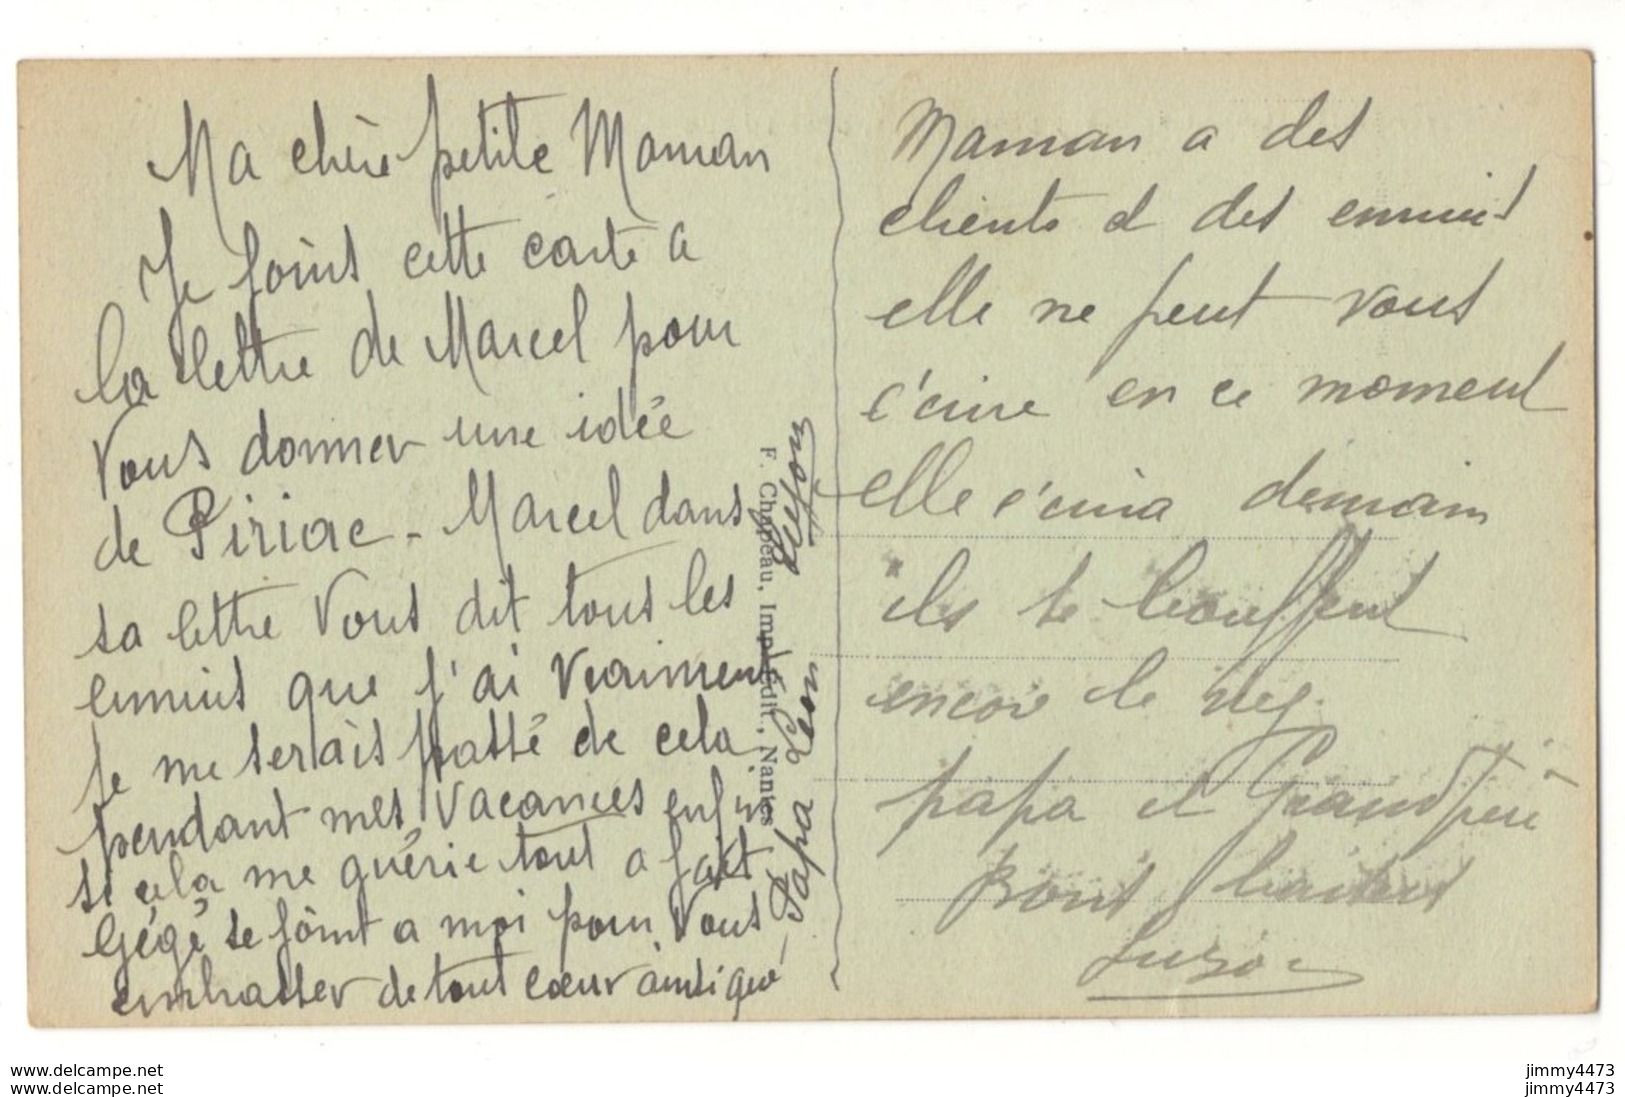 Ma chère petite Maman
Je joins cette carte a
la lettre de Marcel pour
Vous donner une idée
de Piriac - Marcel dans
sa lettre Vous dit tous les
ennuis que j'ai Vraiment
je me serais passé de cela
pendant mes Vacances enfin
si cela me guérie tout a fait
Gégé se joint a moi pour Vous
embrasser de tout cœur ainsi que
Papa Leon
F. Chapeau, Imp.-Edit., Nantes
Maman a des
clients et des ennuis
elle ne peut vous
écrire en ce moment
elle écrira demain
ils se
encore le
papa et Grand père
Bons baisers
Suzon
jimmy4473
jimmy4473
www.delcampe.net
www.delcampe.net